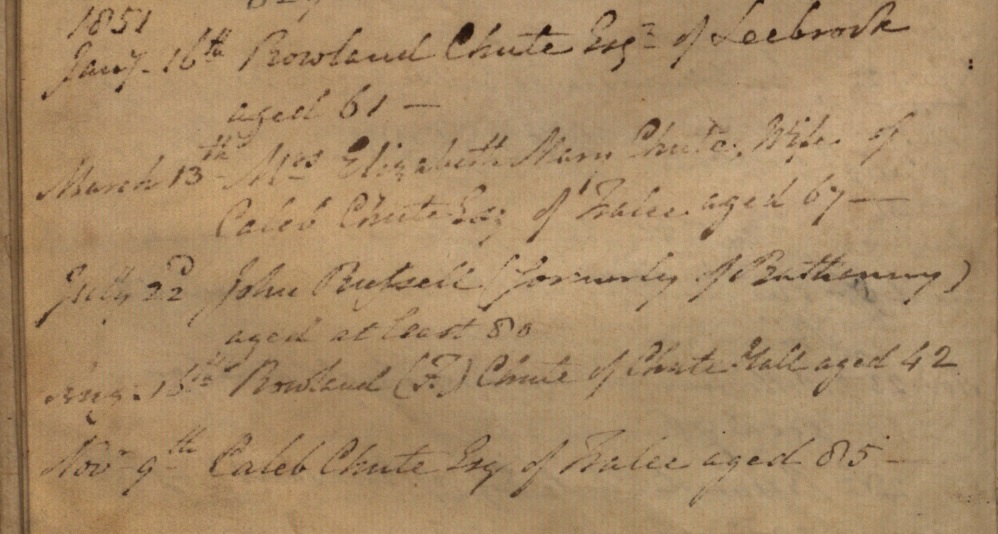 1851
Jany. 16th Rowland Chute Esqr of Leebrook
aged 61 —
March 13th Mrs Elizabeth Mary Chute, Wife of
Caleb Chute Esq of Tralee aged 67 —
July 22d John Russell (formerly of Ratheanny)
aged at least 80
Aug. 16th Rowland (F.) Chute of Chute Hall aged 42
Novr 9th Caleb Chute Esq of Tralee aged 85 —